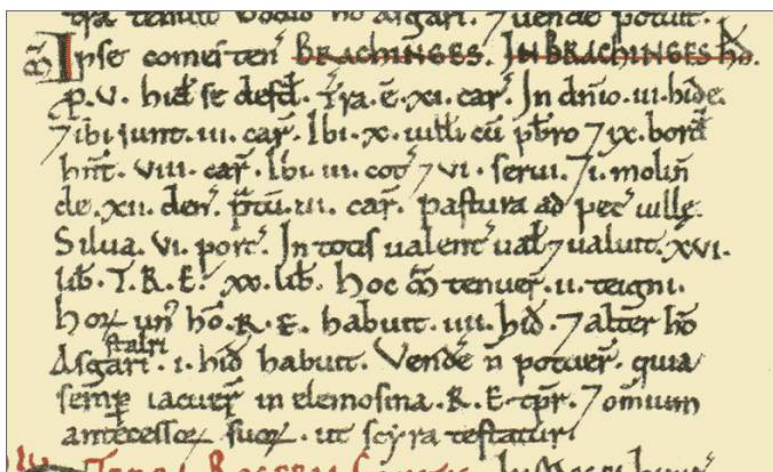 tra tenuit Godid hō Asgari. ⁊ uende potuit.
M̄ Ipse comes ten' BRACHINGES. IN BRACHINGES hđ.
p. V. hid' se defd'. T'ra. ē. XI. car'. In dn̄io. III. hidę.
⁊ ibi sunt. III. car'. Ibi. X. uilli cū pb̄ro ⁊ IX. bord'
hn̄t. VIII. car'. Ibi. III. cot' ⁊ VI. serui. ⁊ I. molin̄
de. XII. den'. p̄tū. III. car'. pastura ad pec' uillę.
Silua. VI. porc'. In totis ualent' ual' ⁊ ualuit. XVI.
lib'. T.R.E. XX. lib'. hoc M̄ tenuer'. II. teigni.
hoꝝ un' hō. R. E. habuit. IIII. hid'. ⁊ alter hō
stalri
Asgari. I. hid' habuit. Vende' n̄ potuer'. quia
semp iacuer' in elemosina. R. E. tp̄r. ⁊ om̄ium
antecessoꝝ suoꝝ. ut scyra testatur.
TERRA ROGERII COMITIS